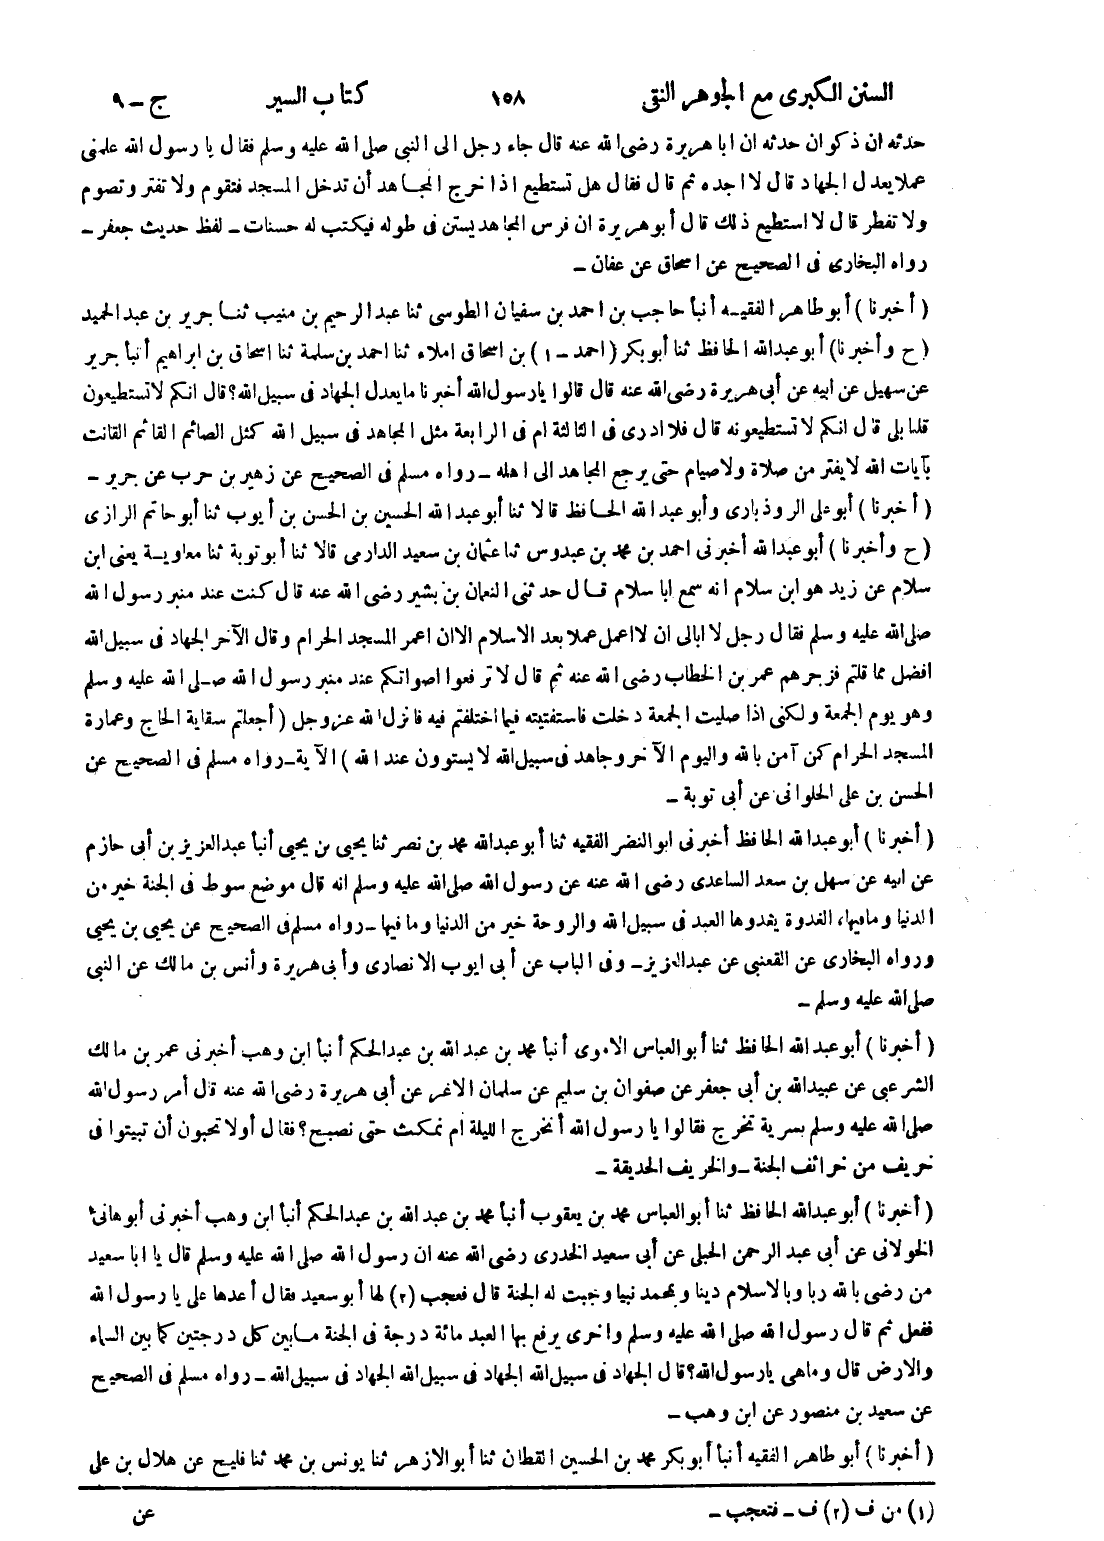 السنن الكبرى مع الجوهر النقى ١٥٨ كتاب السير ج ـ ٩
حدثه ان ذكوان حدثه ان ابا هريرة رضى الله عنه قال جاء رجل الى النبى صلى الله عليه وسلم فقال يا رسول الله علمنى
عملا يعدل الجهاد قال لا اجده ثم قال فقال هل تستطيع اذا خرج المجاهد أن تدخل المسجد فتقوم ولا تفتر وتصوم
ولا تفطر قال لا استطيع ذلك قال أبو هريرة ان فرس المجاهد يستن فى طوله فيكتب له حسنات ـ لفظ حديث جعفر ـ
رواه البخارى فى الصحيح عن اسحاق عن عفان ـ
( أخبرنا ) أبو طاهر الفقيه أنبأ حاجب بن احمد بن سفيان الطوسى ثنا عبد الرحيم بن منيب ثنا جرير بن عبد الحميد
( ح وأخبرنا ) أبو عبد الله الحافظ ثنا أبو بكر ( احمد ـ ١ ) بن اسحاق املاء ثنا احمد بن سلمة ثنا اسحاق بن ابراهيم أنبأ جرير
عن سهيل عن ابيه عن أبى هريرة رضى الله عنه قال قالوا يا رسول الله أخبرنا ما يعدل الجهاد فى سبيل الله؟ قال انكم لا تستطيعون
قلنا بلى قال انكم لا تستطيعونه قال فلا ادرى فى الثالثة ام فى الرابعة مثل المجاهد فى سبيل الله كمثل الصائم القائم القانت
بآيات الله لا يفتر من صلاة ولا صيام حتى يرجع المجاهد الى اهله ـ رواه مسلم فى الصحيح عن زهير بن حرب عن جرير ـ
( أخبرنا ) أبو على الروذبارى وأبو عبد الله الحافظ قالا ثنا أبو عبد الله الحسين بن الحسن بن أيوب ثنا أبو حاتم الرازى
( ح وأخبرنا ) أبو عبد الله أخبرنى احمد بن محمد بن عبدوس ثنا عثمان بن سعيد الدارمى قالا ثنا أبو توبة ثنا معاوية يعنى ابن
سلام عن زيد هو ابن سلام انه سمع ابا سلام قال حدثنى النعمان بن بشير رضى الله عنه قال كنت عند منبر رسول الله
صلى الله عليه وسلم فقال رجل لا ابالى ان لا اعمل عملا بعد الاسلام الا ان اعمر المسجد الحرام وقال الآخر الجهاد فى سبيل الله
افضل مما قلتم فزجرهم عمر بن الخطاب رضى الله عنه ثم قال لا ترفعوا اصواتكم عند منبر رسول الله صلى الله عليه وسلم
وهو يوم الجمعة ولكنى اذا صليت الجمعة دخلت فاستفتيته فيما اختلفتم فيه فانزل الله عزوجل ( أجعلتم سقاية الحاج وعمارة
المسجد الحرام كمن آمن بالله واليوم الآخر وجاهد فى سبيل الله لا يستوون عند الله ) الآية ـ رواه مسلم فى الصحيح عن
الحسن بن على الحلوانى عن أبى توبة ـ
( أخبرنا ) أبو عبد الله الحافظ أخبرنى ابو النضر الفقيه ثنا أبو عبد الله محمد بن نصر ثنا يحيى بن يحيى أنبأ عبد العزيز بن أبى حازم
عن ابيه عن سهل بن سعد الساعدى رضى الله عنه عن رسول الله صلى الله عليه وسلم انه قال موضع سوط فى الجنة خير من
الدنيا وما فيها، الغدوة يغدوها العبد فى سبيل الله والروحة خير من الدنيا وما فيها ـ رواه مسلم فى الصحيح عن يحيى بن يحيى
ورواه البخارى عن القعنبى عن عبد العزيز ـ وفى الباب عن أبى ايوب الانصارى وأبى هريرة وأنس بن مالك عن النبى
صلى الله عليه وسلم ـ
( أخبرنا ) أبو عبد الله الحافظ ثنا أبو العباس الاموى أنبأ محمد بن عبد الله بن عبد الحكم أنبأ ابن وهب أخبرنى عمر بن مالك
الشرعبى عن عبيد الله بن أبى جعفر عن صفوان بن سليم عن سلمان الاغر عن أبى هريرة رضى الله عنه قال أمر رسول الله
صلى الله عليه وسلم بسرية تخرج فقالوا يا رسول الله أنخرج الليلة ام نمكث حتى نصبح؟ فقال أولا تحبون أن تبيتوا فى
خريف من خرائف الجنة ـ والخريف الحديقة ـ
( أخبرنا ) أبو عبد الله الحافظ ثنا أبو العباس محمد بن يعقوب أنبأ محمد بن عبد الله بن عبد الحكم أنبأ ابن وهب أخبرنى أبو هانئ
الخولانى عن أبى عبد الرحمن الحبلى عن أبى سعيد الخدرى رضى الله عنه ان رسول الله صلى الله عليه وسلم قال يا ابا سعيد
من رضى بالله ربا وبالاسلام دينا وبمحمد نبيا وجبت له الجنة قال فعجب (٢) لها أبو سعيد فقال أعدها على يا رسول الله
ففعل ثم قال رسول الله صلى الله عليه وسلم واخرى يرفع بها العبد مائة درجة فى الجنة ما بين كل درجتين كما بين السماء
والارض قال وما هى يا رسول الله؟ قال الجهاد فى سبيل الله الجهاد فى سبيل الله الجهاد فى سبيل الله ـ رواه مسلم فى الصحيح
عن سعيد بن منصور عن ابن وهب ـ
( أخبرنا ) أبو طاهر الفقيه أنبأ أبو بكر محمد بن الحسين القطان ثنا أبو الازهر ثنا يونس بن محمد ثنا فليح عن هلال بن على
(١) من ف (٢) ف ـ فتعجب ـ عن